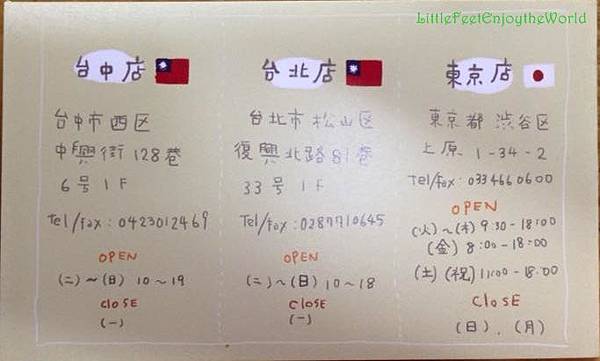 LittleFeetEnjoytheWorld
台中店
台中市西区
中興街128巷
6号1F
Tel/fax:0423012469
OPEN
(二)~(日) 10~19
CLOSE
(一)
台北店
台北市松山区
復興北路81巷
33号1F
Tel/fax:0287710645
OPEN
(二)~(日) 10~18
CLOSE
(一)
東京店
東京都 渋谷区
上原 1-34-2
Tel/fax:0334660600
OPEN
(火)~(木) 9:30-18:00
(金) 8:00-18:00
(土)(祝) 11:00-18:00
CLOSE
(日).(月)